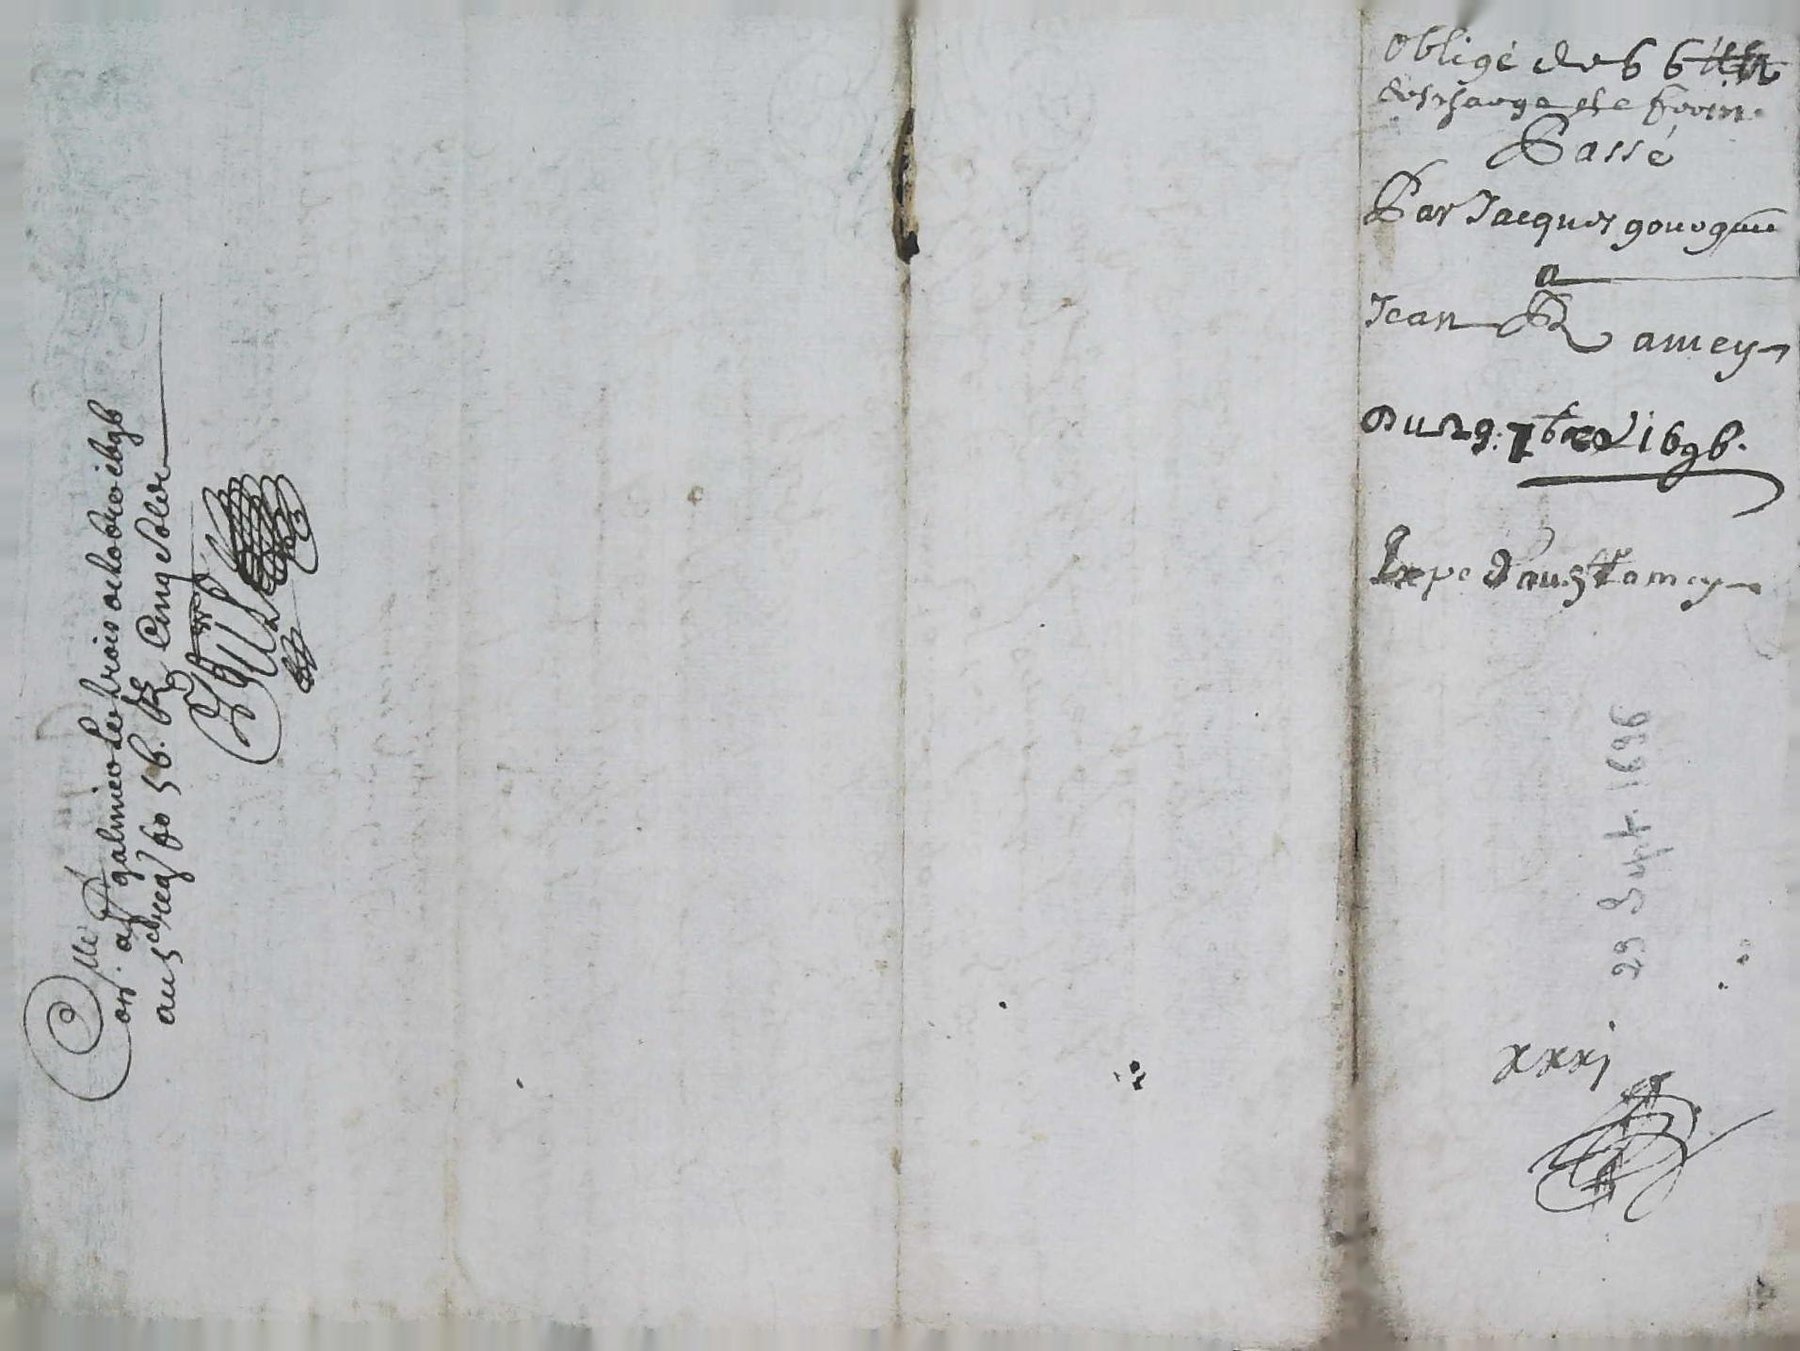 Obligé de 66 ₶
descharge de foin
Passé
Par Jacques
a
Jean Ramey
Du 29: 7bre 1696.
Expé d'aud Ramey
29 Sept. 1696
xxxj
on. a St galmier Le trois octobre 1696
au 5e reg fo 56. R Cinq solz